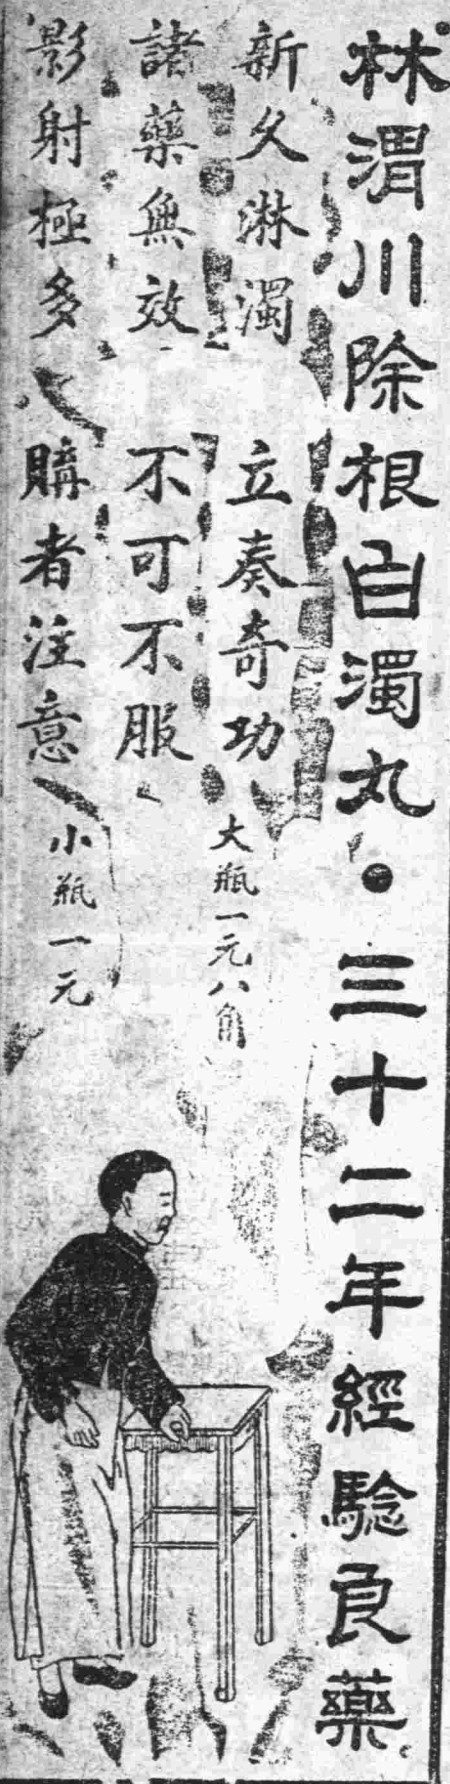 林渭川除根白濁丸●三十二年經驗良藥
新久淋濁 立奏奇功 大瓶一元八角
諸藥無效 不可不服
影射極多 購者注意 小瓶一元